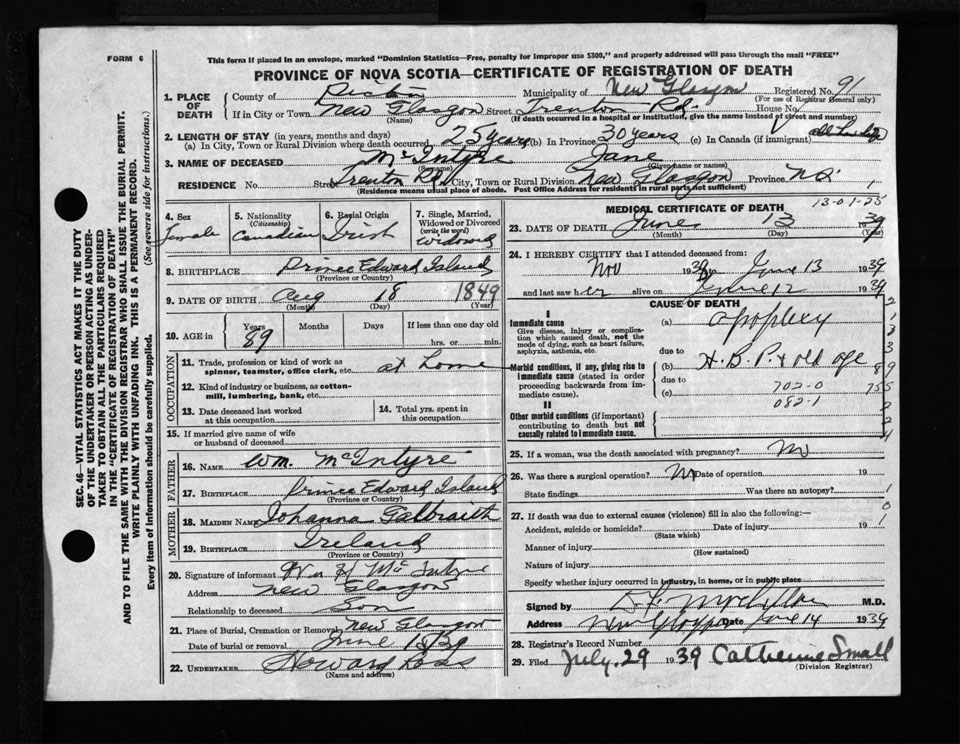 FORM 6
This form if placed in an envelope, marked "Dominion Statistics—Free, penalty for improper use $300," and properly addressed will pass through the mail "FREE"
PROVINCE OF NOVA SCOTIA—CERTIFICATE OF REGISTRATION OF DEATH
1. PLACE OF DEATH
County of Pictou Municipality of New Glasgow Registered No. 91
(For use of Registrar General only)
If in City or Town New Glasgow Street Trenton Rd. House No.
(Name) (If death occurred in a hospital or institution, give the name instead of street and number)
2. LENGTH OF STAY (in years, months and days)
(a) In City, Town or Rural Division where death occurred 25 years (b) In Province 30 years (c) In Canada (if immigrant) all her life
3. NAME OF DECEASED McIntyre Jane
(Surname) (Given name or names)
RESIDENCE No. Street Trenton Rd. City, Town or Rural Division New Glasgow Province N.S.
(Residence means usual place of abode. Post Office Address for residents in rural parts not sufficient)
1
13-01-25
4. Sex
Female
5. Nationality
(Citizenship)
Canadian
6. Racial Origin
Irish
7. Single, Married, Widowed or Divorced
(write the word)
Widowed
8. BIRTHPLACE Prince Edward Island
(Province or Country)
9. DATE OF BIRTH Aug 18 1849
(Month) (Day) (Year)
10. AGE in
Years Months Days If less than one day old
89 hrs. or min.
OCCUPATION
11. Trade, profession or kind of work as spinner, teamster, office clerk, etc. at home
12. Kind of industry or business, as cotton-mill, lumbering, bank, etc.
13. Date deceased last worked at this occupation
14. Total yrs. spent in this occupation
15. If married give name of wife or husband of deceased
FATHER
16. NAME Wm. McIntyre
17. BIRTHPLACE Prince Edward Island
(Province or Country)
MOTHER
18. MAIDEN NAME Johanna Galbraith
19. BIRTHPLACE Ireland
(Province or Country)
20. Signature of informant McIntyre
Address New Glasgow
Relationship to deceased Son
21. Place of Burial, Cremation or Removal New Glasgow
Date of burial or removal June
22. UNDERTAKER Howard Ross
(Name and address)
MEDICAL CERTIFICATE OF DEATH
23. DATE OF DEATH June 13 1939
(Month) (Day)
24. I HEREBY CERTIFY that I attended deceased from:
Nov 19 to June 13 1939
and last saw her alive on June 12 1939
CAUSE OF DEATH
I
Immediate cause
Give disease, injury or complication which caused death, not the mode of dying, such as heart failure, asphyxia, asthenia, etc.
(a) apoplexy
due to
Morbid conditions, if any, giving rise to immediate cause (stated in order proceeding backwards from immediate cause)
(b) H.B.P. & old age
due to
(c) 702-0
082-1
II
Other morbid conditions (if important) contributing to death but not causally related to immediate cause.
25. If a woman, was the death associated with pregnancy? No
26. Was there a surgical operation? No Date of operation 19
State findings Was there an autopsy?
27. If death was due to external causes (violence) fill in also the following:—
Accident, suicide or homicide? Date of injury 19
(State which)
Manner of injury
(How sustained)
Nature of injury
Specify whether injury occurred in industry, in home, or in public place
Signed by M.D.
Address New Glasgow Date June 14 1939
28. Registrar's Record Number
29. Filed July 29 1939 Catherine Small
(Division Registrar)
SEC. 46—VITAL STATISTICS ACT MAKES IT THE DUTY
OF THE UNDERTAKER OR PERSON ACTING AS UNDER-
TAKER TO OBTAIN ALL THE PARTICULARS REQUIRED
IN THE "CERTIFICATE OF REGISTRATION OF DEATH"
AND TO FILE THE SAME WITH THE DIVISION REGISTRAR WHO SHALL ISSUE THE BURIAL PERMIT.
WRITE PLAINLY WITH UNFADING INK. THIS IS A PERMANENT RECORD.
Every item of information should be carefully supplied. (See reverse side for instructions.)